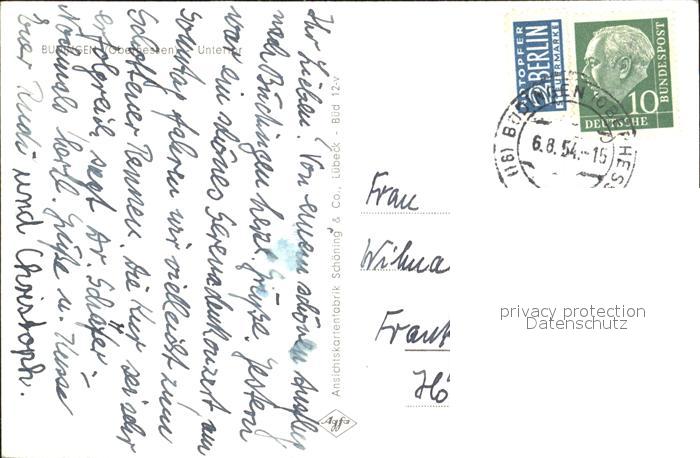 BÜDINGEN (Oberhessen) - Untertor
Ihr Lieben! Von einem schönen Ausflug
nach Büdingen herzl. Grüsse. Gestern
war ein schönes Serenadenkonzert am
Sonntag fahren wir vielleicht zum
Schottener Rennen. Die Kur sei sehr
erfolgreich, sagt Dr. Schäfer
Nochmals herzl. Grüße u. Küsse
Euer Rudi und Christoph.
Ansichtskartenfabrik Schöning & Co., Lübeck - Büd 12-v
Agfa
NOTOPFER
2 BERLIN
STEUERMARKE
10
DEUTSCHE
BUNDESPOST
(16) BÜDINGEN (OBERHESS)
6.8.54.-15
Frau
Wilma
Frank
Hö
privacy protection
Datenschutz